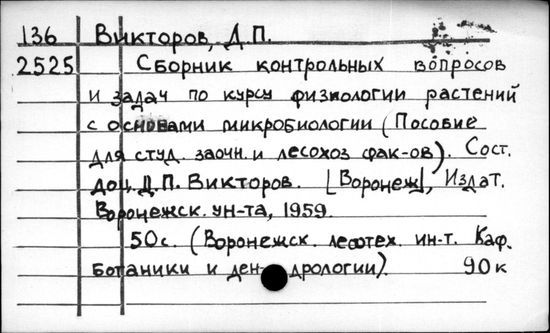 136 Викторов, Д.П.
2525 Сборник контрольных вопросов
и задач по курсу физиологии растений
с основами микробиологии (Пособие
для студ. заочн. и лесохоз фак-ов). Сост.
доц. Д.П. Викторов. [Воронеж], Издат.
Воронежск. ун-та, 1959.
50с. (Воронежск. лесотех. ин-т. Каф.
Ботаники и ден-дрологии). 90к